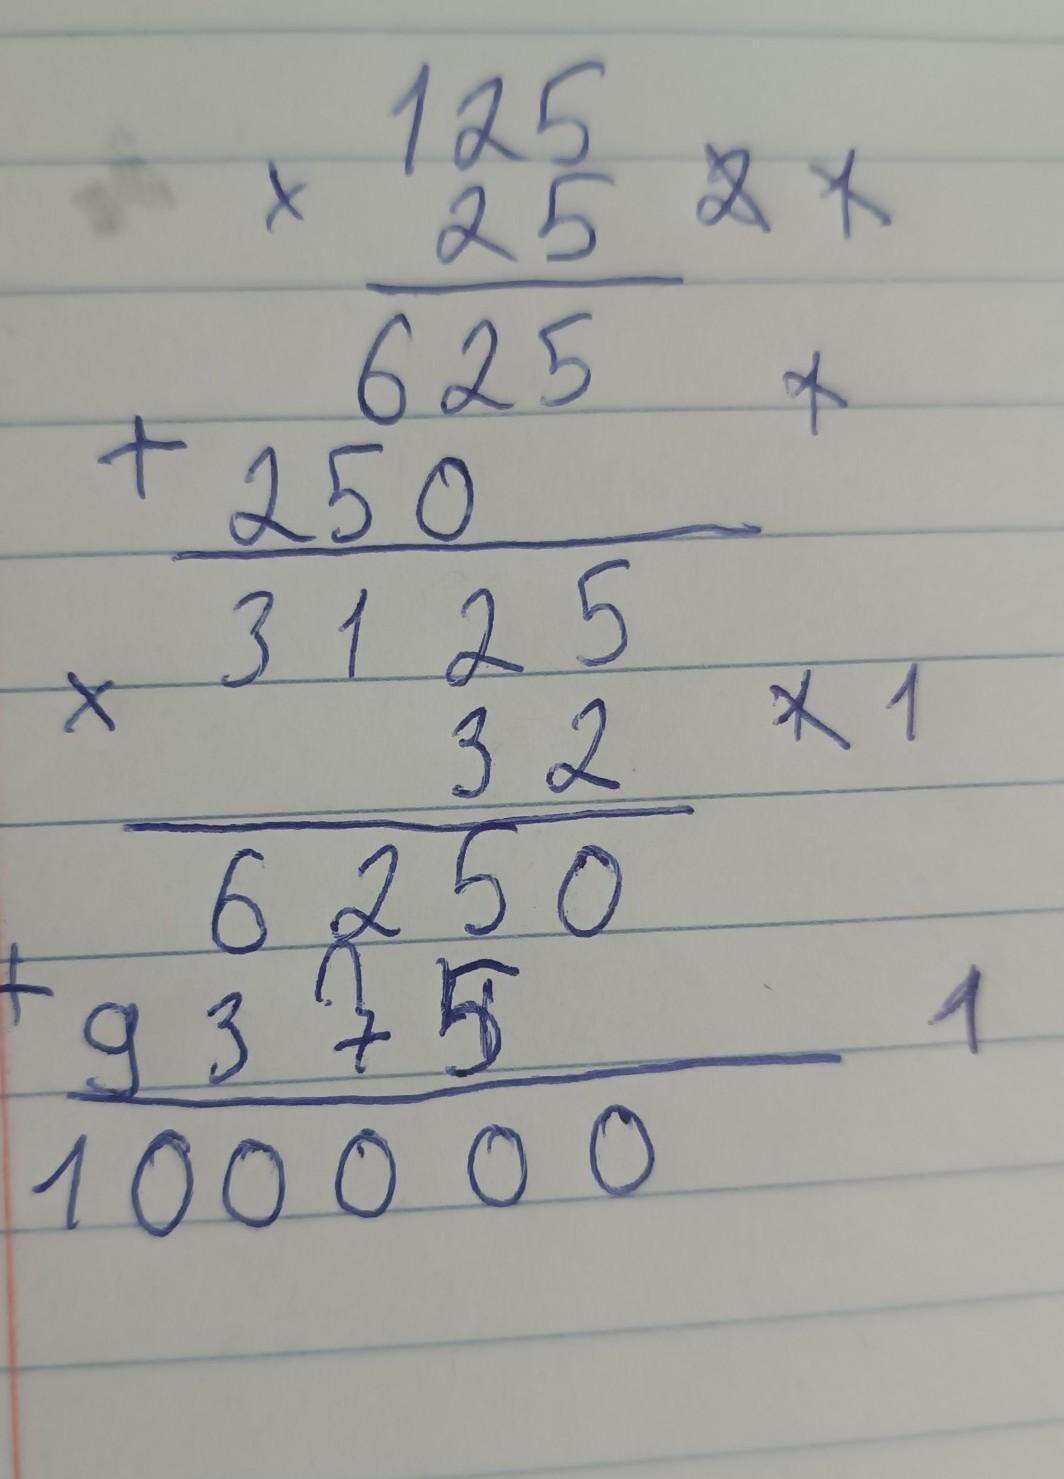 125
× 25 2 1
625 1
+ 250
3125
× 32 1 1
6250
+ 9375 1
100000